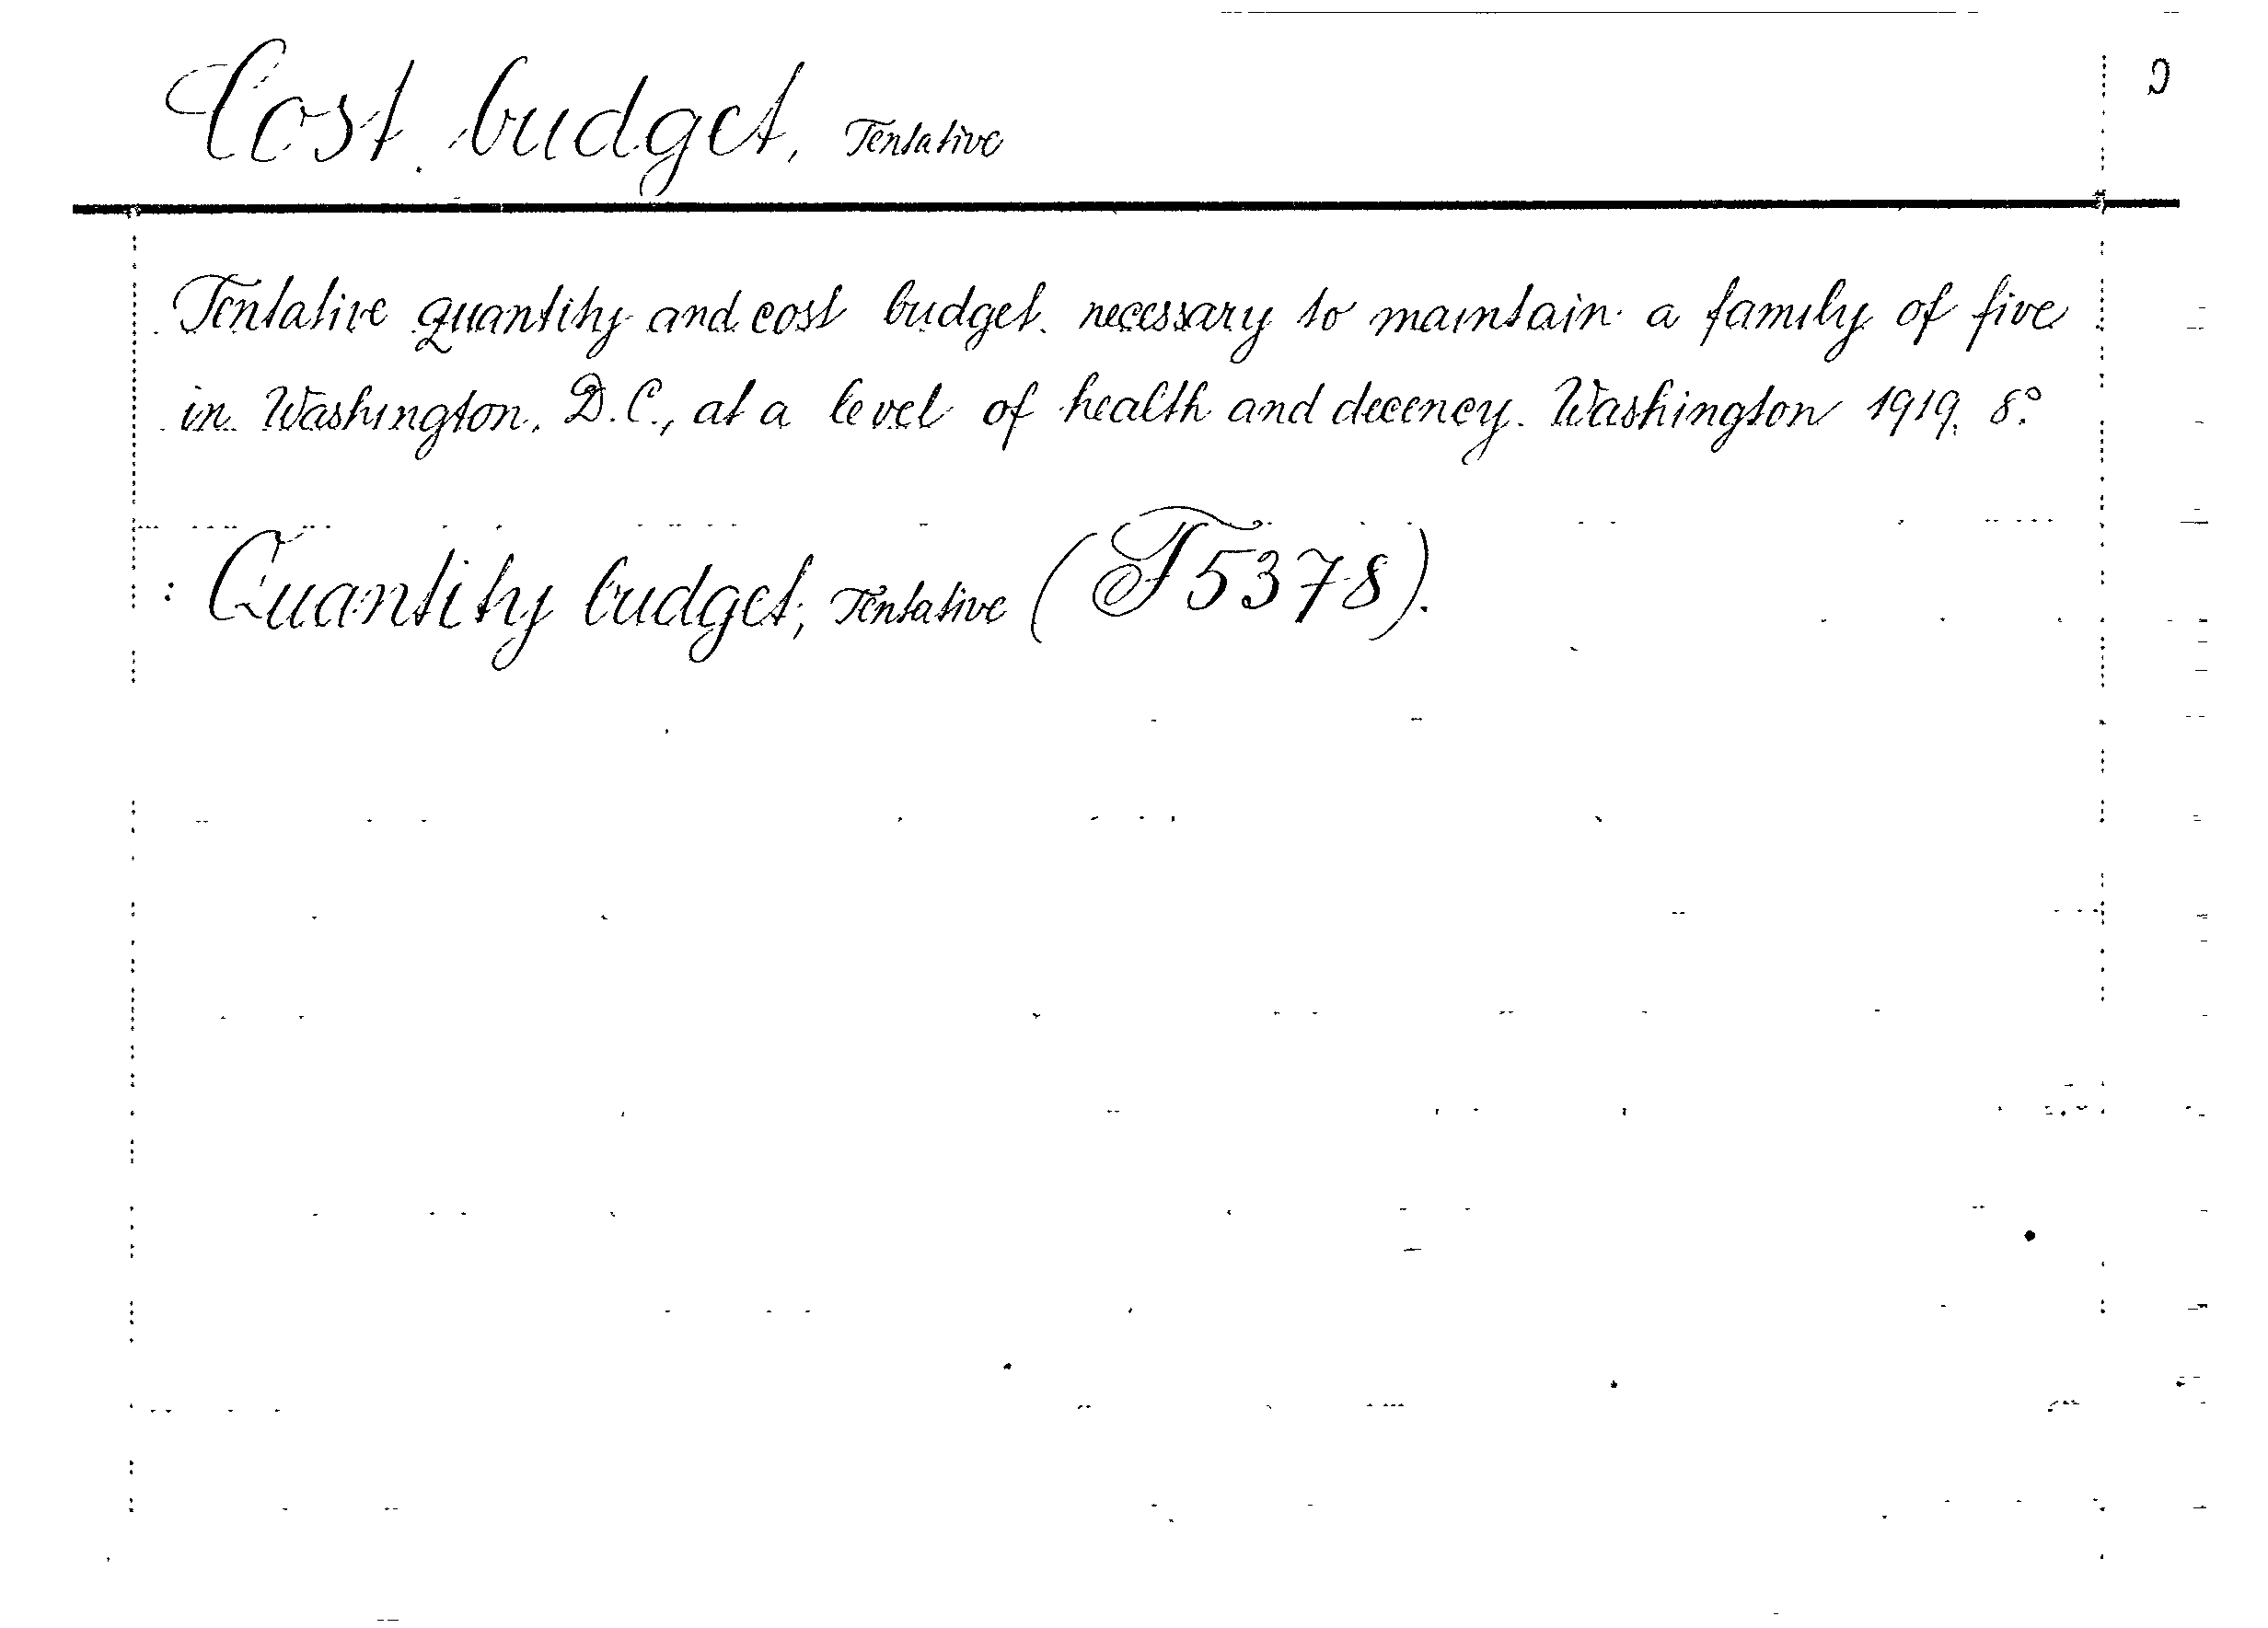 Cost budget, Tentative
Tentative quantity and cost budget necessary to maintain a family of five
in Washington, D.C., at a level of health and decency. Washington 1919. 8°.
: Quantity budget, Tentative (F5378).